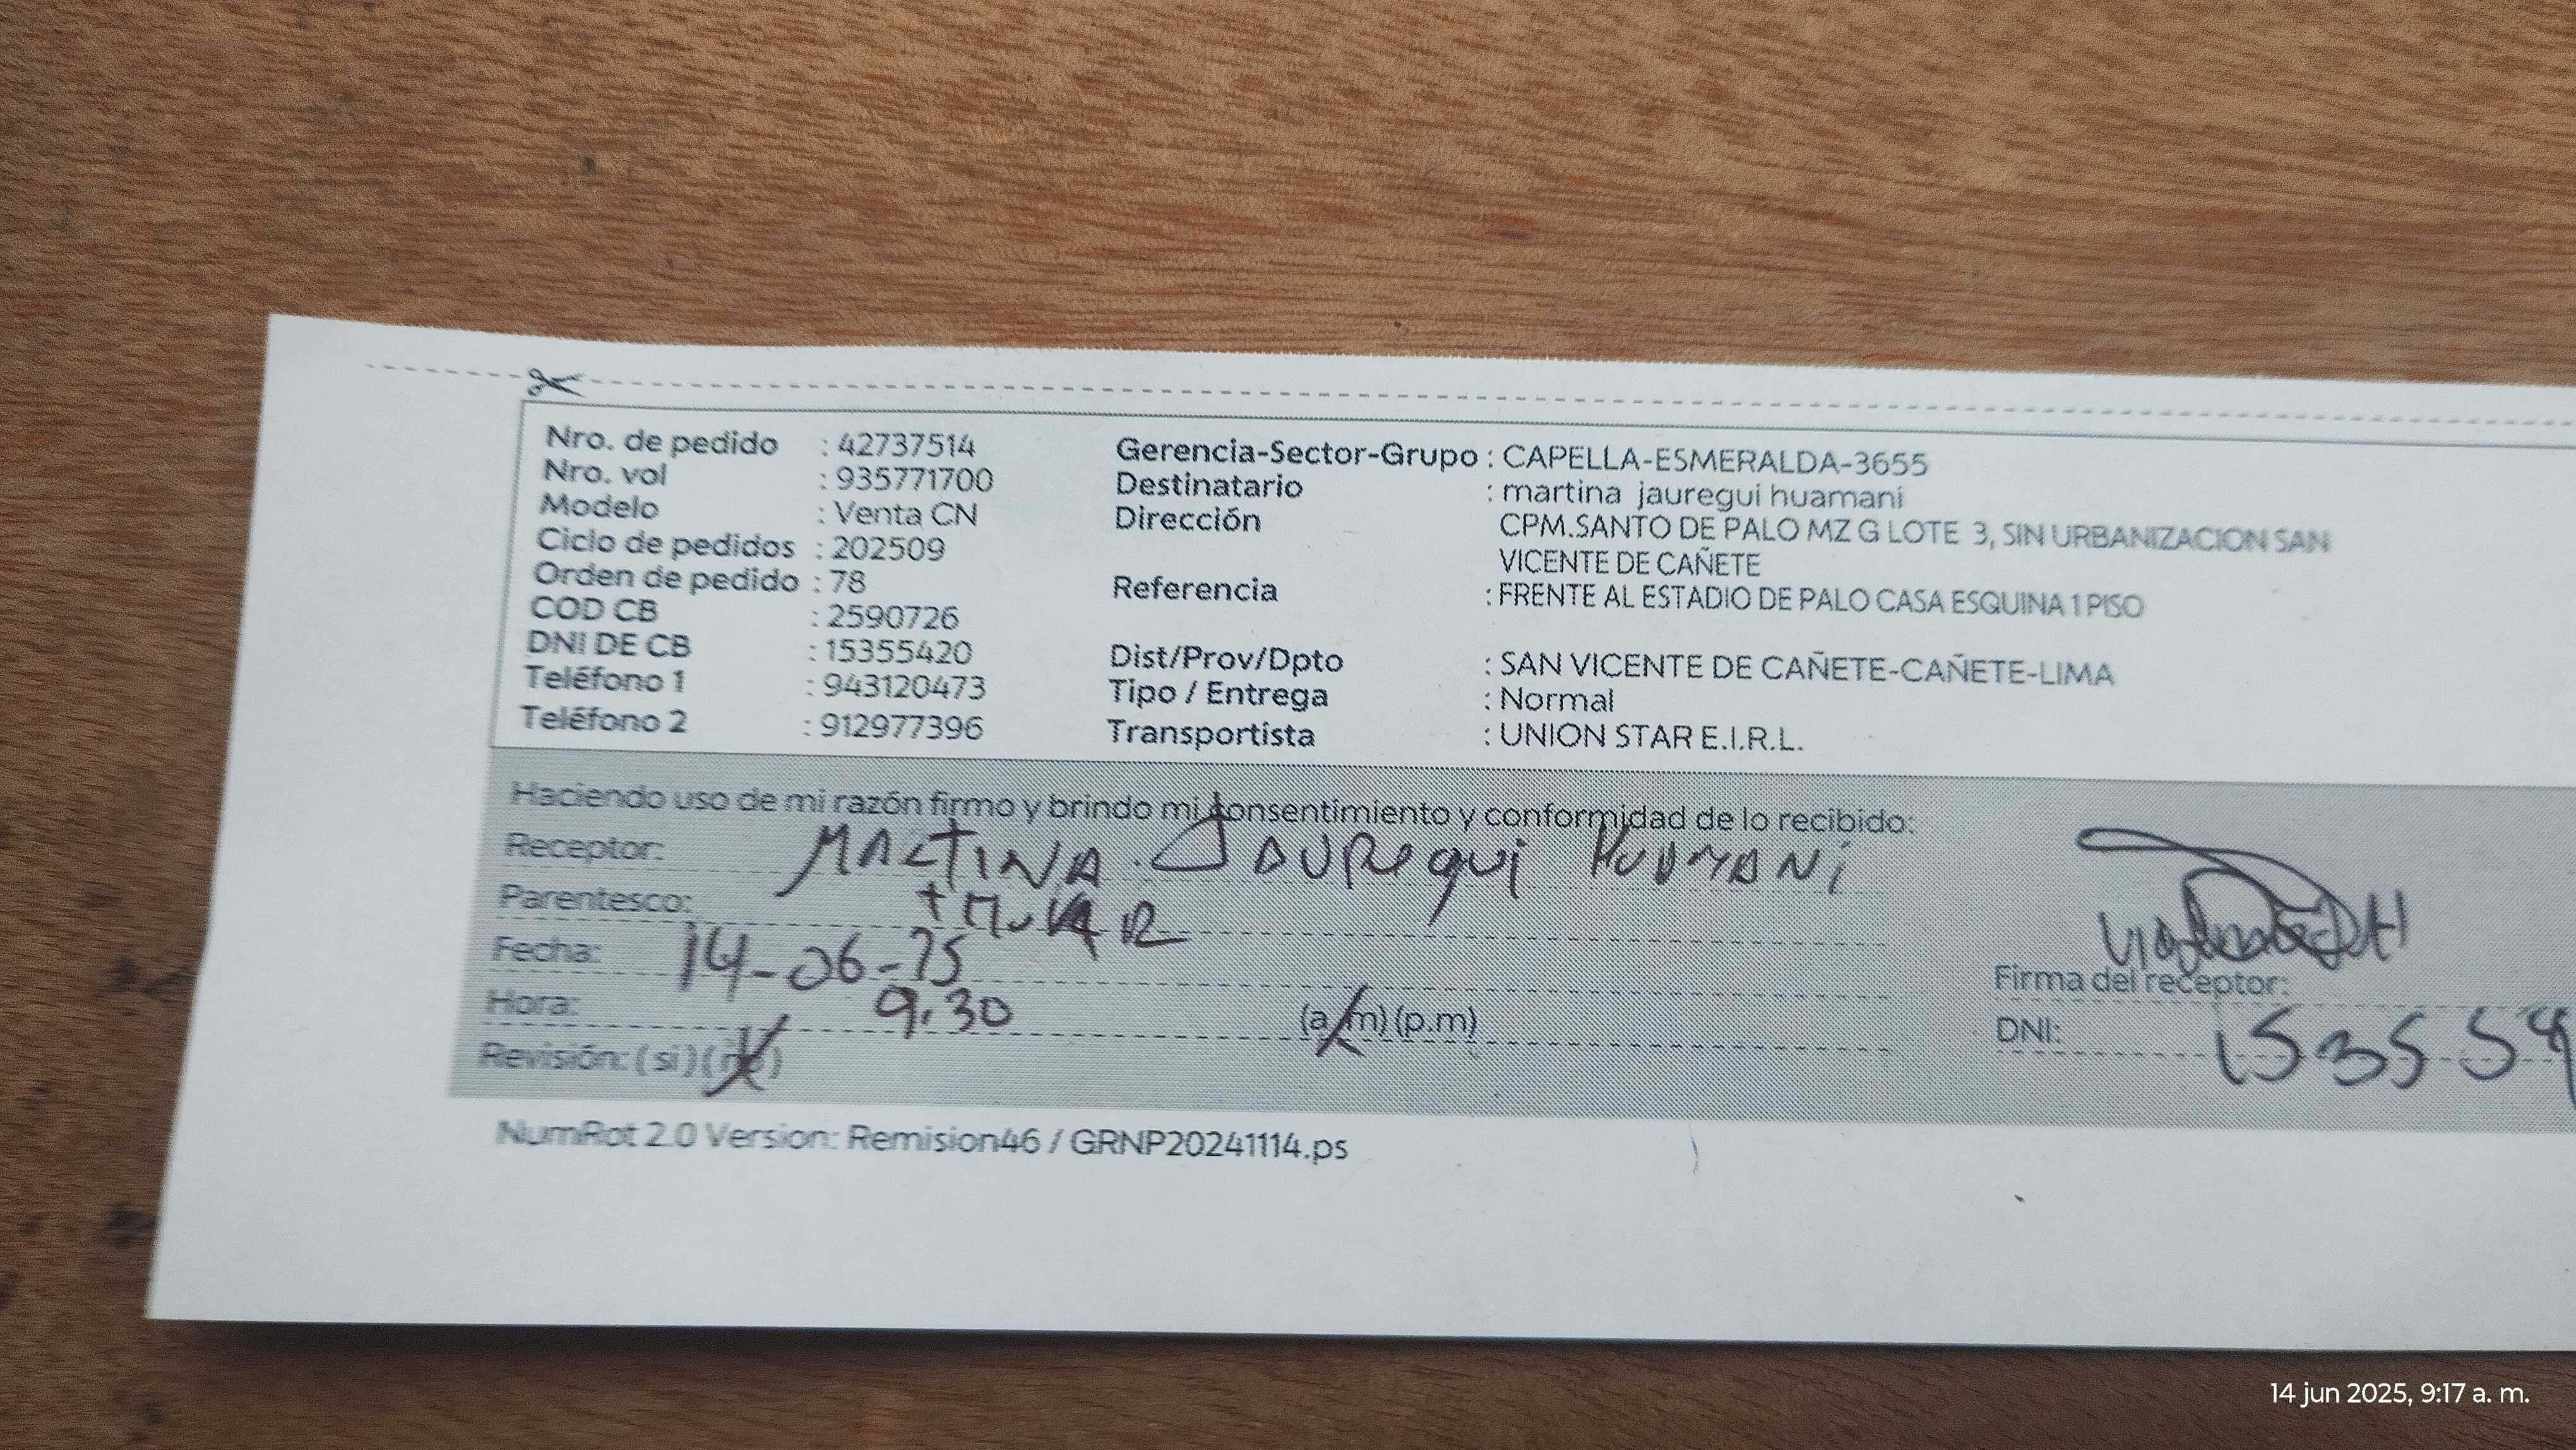 Nro. de pedido : 42737514
Nro. vol : 935771700
Modelo : Venta CN
Ciclo de pedidos : 202509
Orden de pedido : 78
COD CB : 2590726
DNI DE CB : 15355420
Teléfono 1 : 943120473
Teléfono 2 : 912977396
Gerencia-Sector-Grupo : CAPELLA-ESMERALDA-3655
Destinatario : martina jauregui huamani
Dirección CPM.SANTO DE PALO MZ G LOTE 3, SIN URBANIZACION SAN
VICENTE DE CAÑETE
Referencia : FRENTE AL ESTADIO DE PALO CASA ESQUINA 1 PISO
Dist/Prov/Dpto : SAN VICENTE DE CAÑETE-CAÑETE-LIMA
Tipo / Entrega : Normal
Transportista : UNION STAR E.I.R.L.
Haciendo uso de mi razón firmo y brindo mi consentimiento y conformidad de lo recibido:
Receptor: MARTINA JAUREGUI HUAMANI
Parentesco:
Fecha: 14-06-25
Hora: 9.30 (a.m) (p.m)
Revisión: (si) (no)
Firma del receptor:
DNI: 153554
NumRot 2.0 Version: Remision46 / GRNP20241114.ps
14 jun 2025, 9:17 a. m.